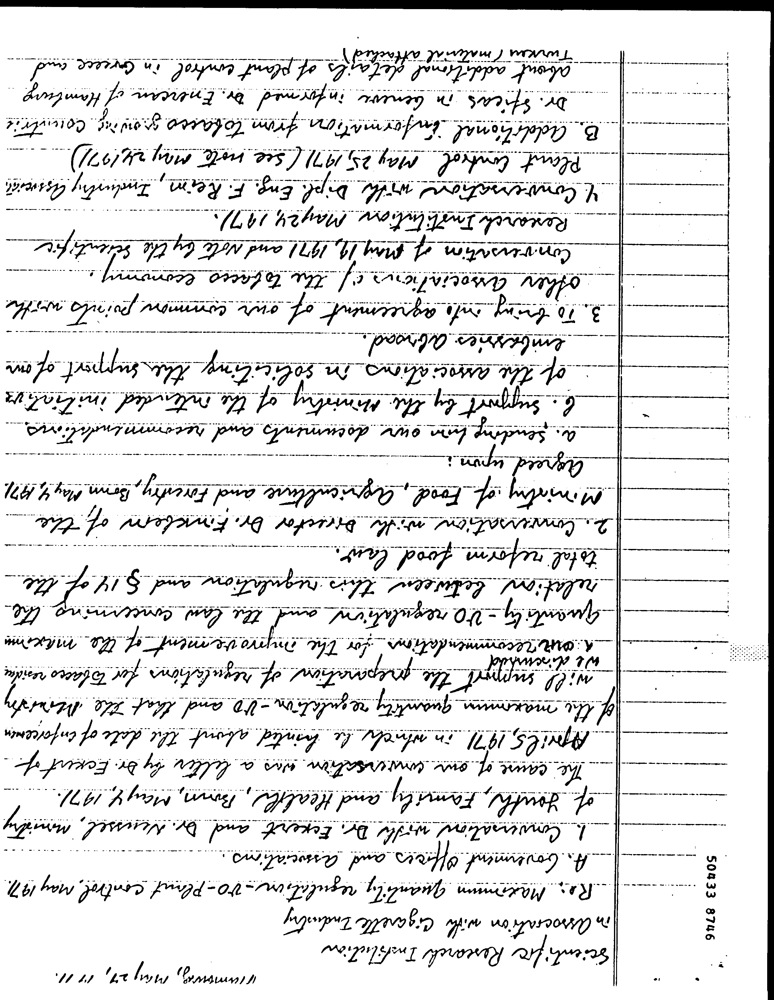 Hamburg, May 27, 1971.
Scientific Research Institution
in Association with Cigarette Industry
Re: Maximum quantity regulation-VO-Plant control, May 1971
A. Government Offices and Associations.
1. Conversation with Dr. Eckert and Dr. Neussel, Ministry
of Youth, Family and Health, Bonn, May 4, 1971.
The cause of our conversation was a letter by Dr. Eckert of
April 5, 1971 in which he hinted about the date of enforcement
of the maximum quantity regulation-VO and that the Ministry
will support the preparation of regulations for tobacco residue
we discussed
our recommendations for the improvement of the maximum
quantity-VO regulation and the law concerning the
relation between this regulation and § 14 of the
total reform food law.
2. Conversation with Director Dr. Finkbein of the
Ministry of Food, Agriculture and Forestry, Bonn May 4, 1971
Agreed upon:
a. Sending him our documents and recommendations
b. Support by the Ministry of the intended initiative
of the associations in soliciting the support of our
embassies abroad.
3. To bring into agreement of our common points with
other associations of the tobacco economy.
Conversation of May 19, 1971 and note by the Scientific
Research Institution May 24, 1971.
4. Conversation with Dipl. Eng. F. Reim, Industry Associati
Plant Control May 25, 1971 (see note May 24, 1971)
B. Additional information from tobacco growing Countrie
Dr. Speas in Geneve informed Dr. Enercan of Hamburg
about additional details of plant control in Greece and
Turkey (material attached)
50433 8746